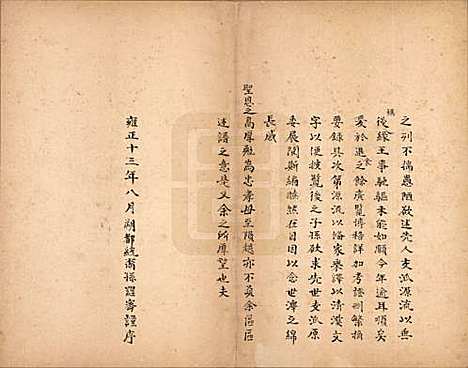 之列不揣愚陋欲述先人支派源流以垂
後緣王事馳驅未能如願今年逾耳順矣
爰於進之餘廣覽博稽詳加考證刪繁摘
要錄其次第源流以備家乘譯以清漢文
字以便披覽後之子孫欲求先世支派原
委展閱斯編瞭然在目因以念世澤之綿
長咸
聖恩之高厚勉為忠孝毋至隕越亦不負余區區
述譜之意是又余之所厚望也夫
雍正十三年八月 都統 孫 謹序